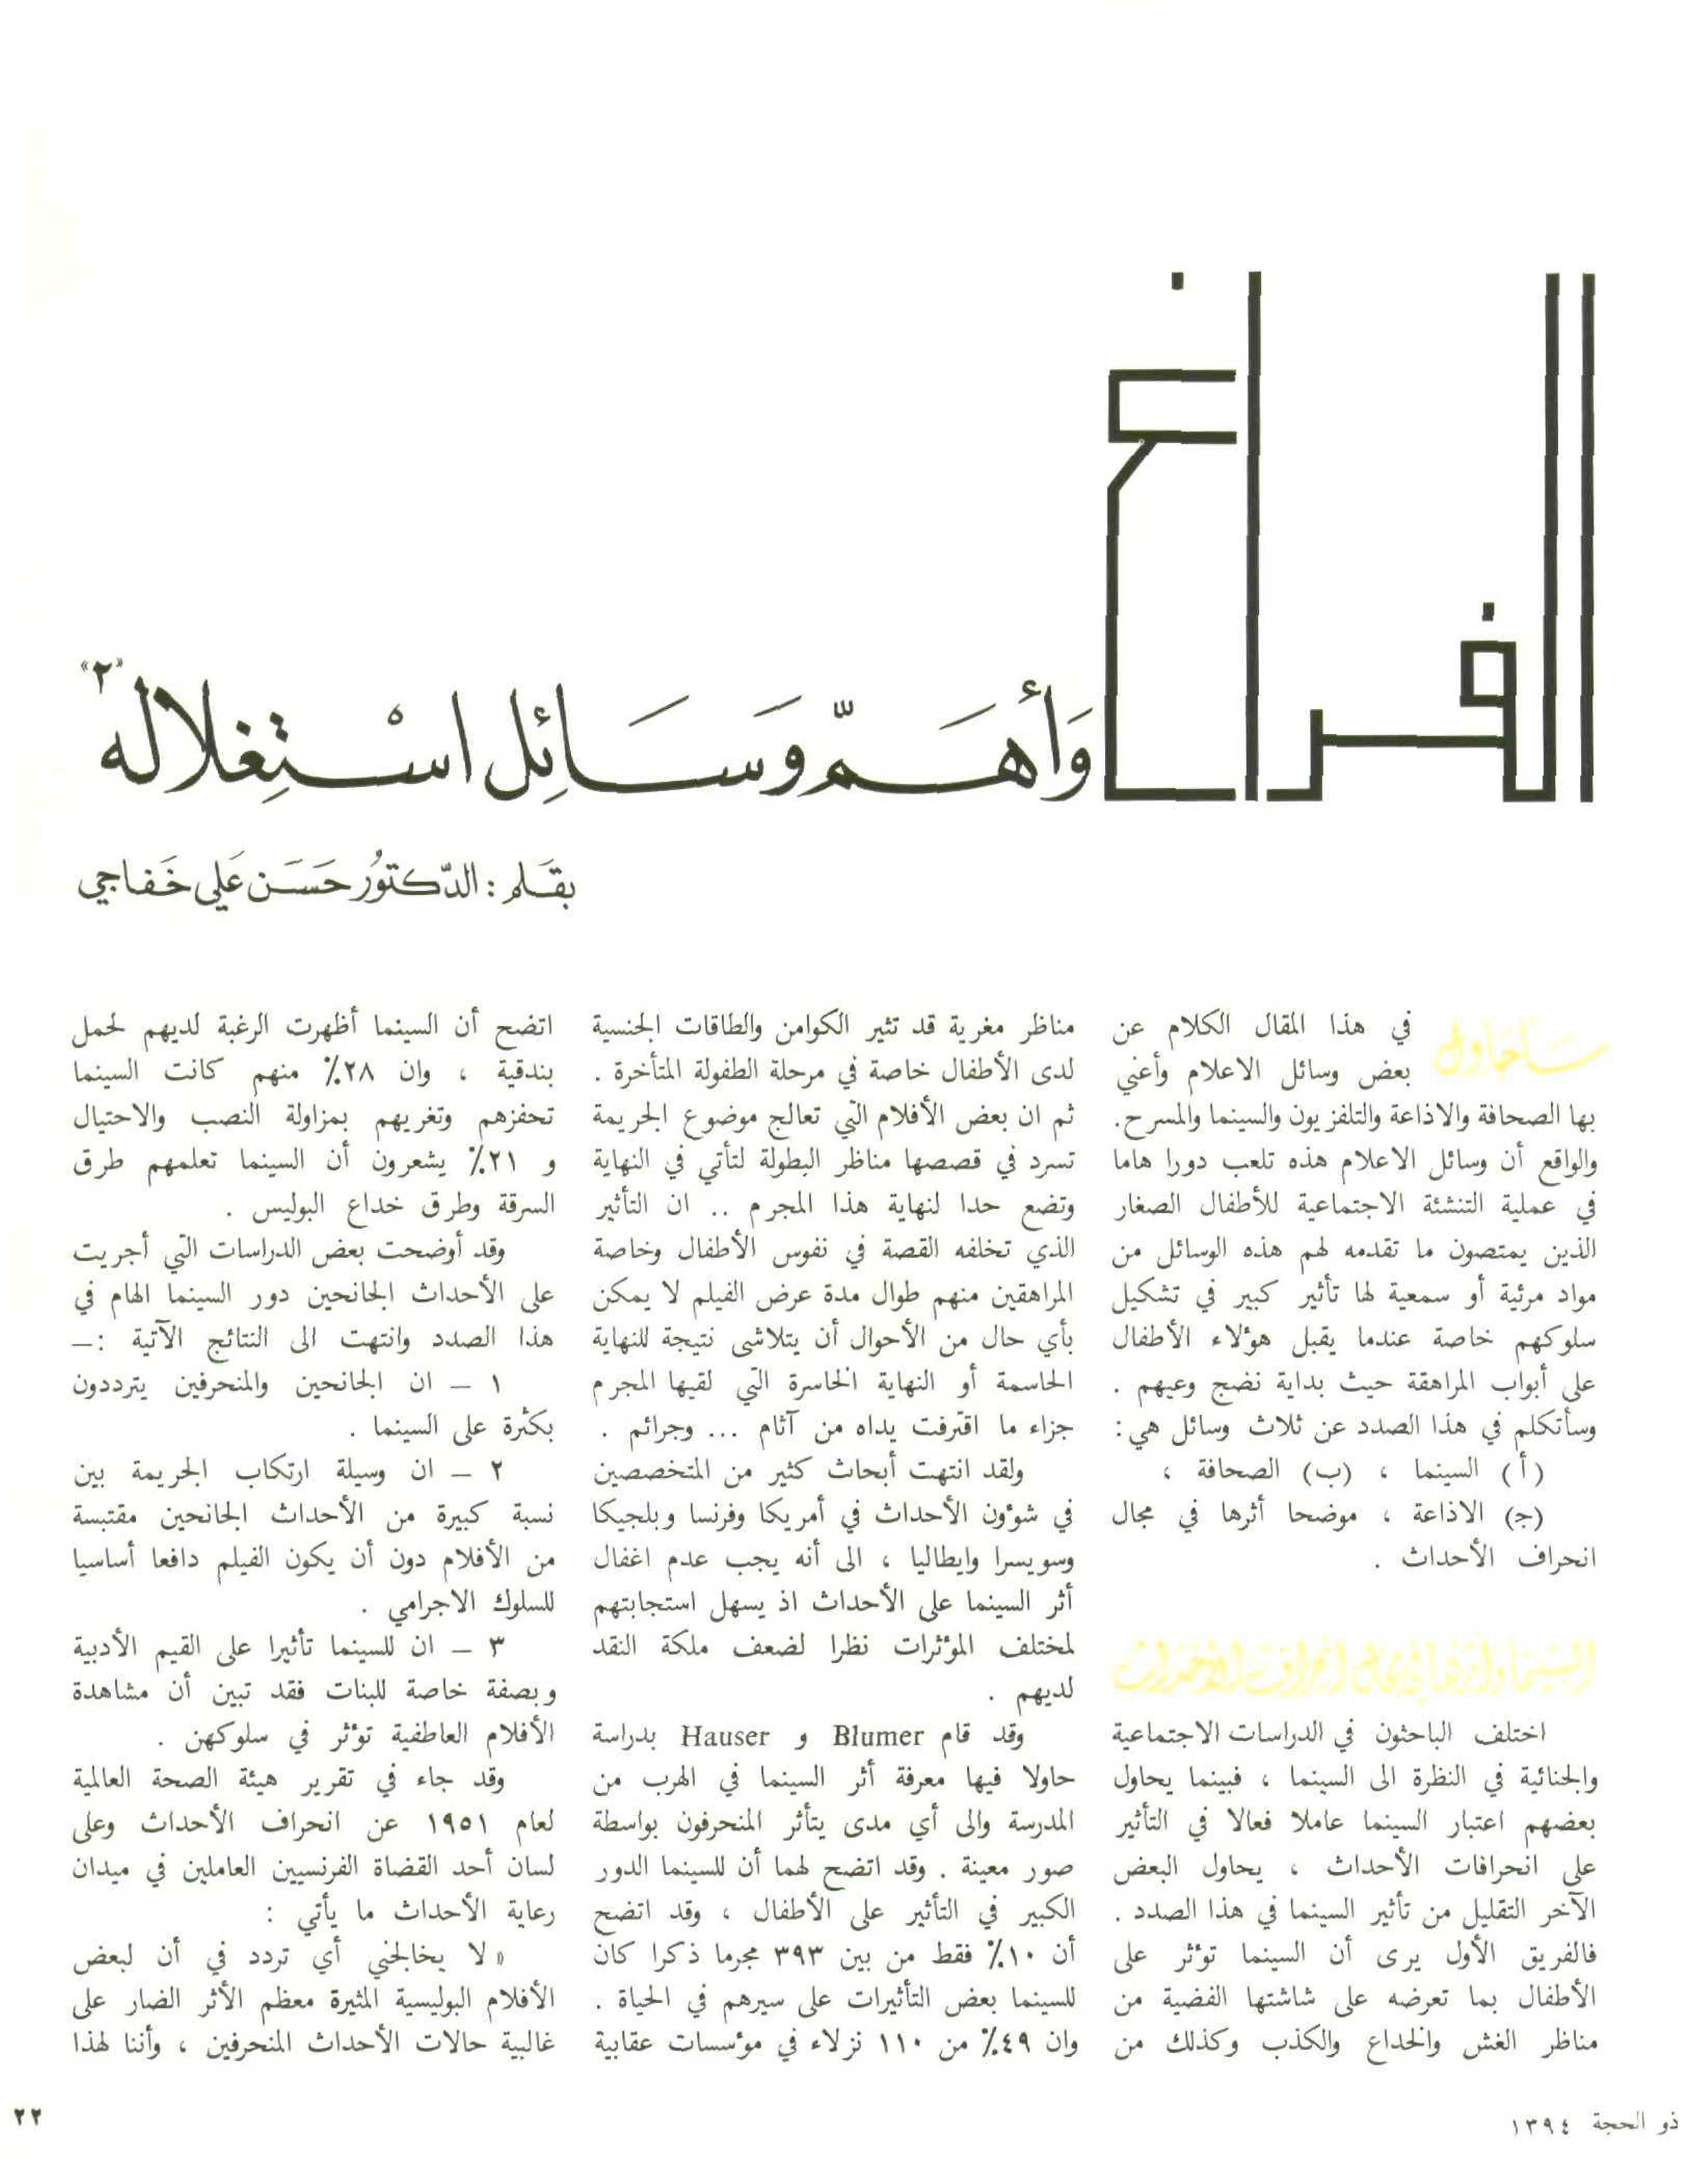 الفراغ وَأهَـمّ وَسَـائِل اسْـتِغلاله «٢»
بقَـلم : الدّكتوُر حَسَـن عَلي خَفاجي
سَأحَاول في هذا المقال الكلام عن
بعض وسائل الاعلام وأعني
بها الصحافة والاذاعة والتلفزيون والسينما والمسرح.
والواقع أن وسائل الاعلام هذه تلعب دورا هاما
في عملية التنشئة الاجتماعية للأطفال الصغار
الذين يمتصون ما تقدمه لهم هذه الوسائل من
مواد مرئية أو سمعية لها تأثير كبير في تشكيل
سلوكهم خاصة عندما يقبل هؤلاء الأطفال
على أبواب المراهقة حيث بداية نضج وعيهم .
وسأتكلم في هذا الصدد عن ثلاث وسائل هي :
(أ) السينما ، (ب) الصحافة ،
(ج) الاذاعة ، موضحا أثرها في مجال
انحراف الأحداث .
السينما وأثرها في مجال انحراف الأحداث
اختلف الباحثون في الدراسات الاجتماعية
والجنائية في النظرة الى السينما ، فبينما يحاول
بعضهم اعتبار السينما عاملا فعالا في التأثير
على انحرافات الأحداث ، يحاول البعض
الآخر التقليل من تأثير السينما في هذا الصدد .
فالفريق الأول يرى أن السينما تؤثر على
الأطفال بما تعرضه على شاشتها الفضية من
مناظر الغش والخداع والكذب وكذلك من
مناظر مغرية قد تثير الكوامن والطاقات الجنسية
لدى الأطفال خاصة في مرحلة الطفولة المتأخرة .
ثم ان بعض الأفلام التي تعالج موضوع الجريمة
تسرد في قصصها مناظر البطولة لتأتي في النهاية
وتضع حدا لنهاية هذا المجرم .. ان التأثير
الذي تخلفه القصة في نفوس الأطفال وخاصة
المراهقين منهم طوال مدة عرض الفيلم لا يمكن
بأي حال من الأحوال أن يتلاشى نتيجة للنهاية
الحاسمة أو النهاية الخاسرة التي لقيها المجرم
جزاء ما اقترفت يداه من آثام ... وجرائم .
ولقد انتهت أبحاث كثير من المتخصصين
في شؤون الأحداث في أمريكا وفرنسا وبلجيكا
وسويسرا وايطاليا ، الى أنه يجب عدم اغفال
أثر السينما على الأحداث اذ يسهل استجابتهم
لمختلف المؤثرات نظرا لضعف ملكة النقد
لديهم .
وقد قام Blumer و Hauser بدراسة
حاولا فيها معرفة أثر السينما في الهرب من
المدرسة والى أي مدى يتأثر المنحرفون بواسطة
صور معينة . وقد اتضح لهما أن للسينما الدور
الكبير في التأثير على الأطفال ، وقد اتضح
أن ١٠٪ فقط من بين ٣٩٣ مجرما ذكرا كان
للسينما بعض التأثيرات على سيرهم في الحياة .
وان ٤٩٪ من ١١٠ نزلاء في مؤسسات عقابية
اتضح أن السينما أظهرت الرغبة لديهم لحمل
بندقية ، وان ٢٨٪ منهم كانت السينما
تحفزهم وتغريهم بمزاولة النصب والاحتيال
و ٢١٪ يشعرون أن السينما تعلمهم طرق
السرقة وطرق خداع البوليس .
وقد أوضحت بعض الدراسات التي أجريت
على الأحداث الجانحين دور السينما الهام في
هذا الصدد وانتهت الى النتائج الآتية :ـ
١ ـ ان الجانحين والمنحرفين يترددون
بكثرة على السينما .
٢ ـ ان وسيلة ارتكاب الجريمة بين
نسبة كبيرة من الأحداث الجانحين مقتبسة
من الأفلام دون أن يكون الفيلم دافعا أساسيا
للسلوك الاجرامي .
٣ ـ ان للسينما تأثيرا على القيم الأدبية
وبصفة خاصة للبنات فقد تبين أن مشاهدة
الأفلام العاطفية تؤثر في سلوكهن .
وقد جاء في تقرير هيئة الصحة العالمية
لعام ١٩٥١ عن انحراف الأحداث وعلى
لسان أحد القضاة الفرنسيين العاملين في ميدان
رعاية الأحداث ما يأتي :
« لا يخالجني أي تردد في أن لبعض
الأفلام البوليسية المثيرة معظم الأثر الضار على
غالبية حالات الأحداث المنحرفين ، وأننا لهذا
ذو الحجة ١٣٩٤
٢٢